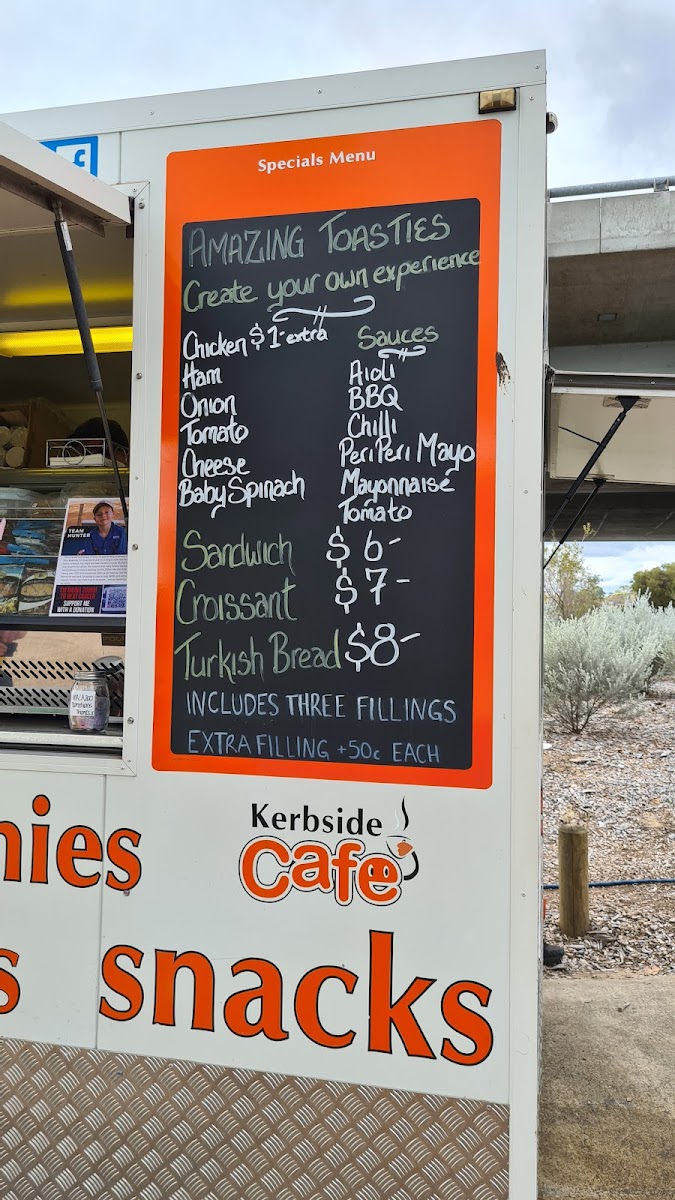 f
Specials Menu
AMAZING TOASTIES
Create your own experience
Chicken $1- extra
Ham
Onion
Tomato
Cheese
Baby Spinach
Sauces
Aioli
BBQ
Chilli
Peri Peri Mayo
Mayonnaise
Tomato
Sandwich $6-
Croissant $7-
Turkish Bread $8-
INCLUDES THREE FILLINGS
EXTRA FILLING +50c EACH
TEAM
HUNTER
SUPPORT ME
WITH A DONATION
Kerbside
Cafe
nies
s snacks